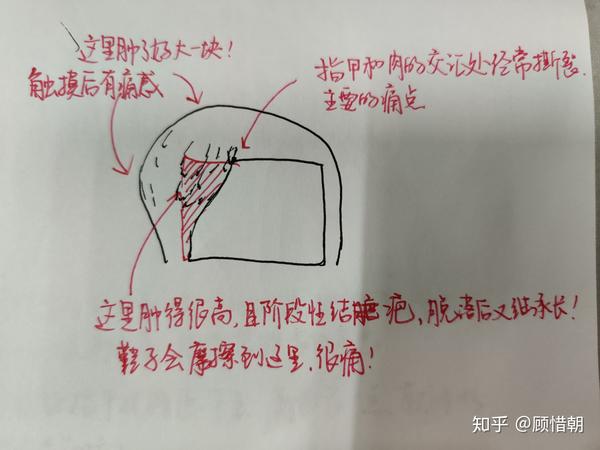 这里肿了好大一块!
触摸后有痛感
指甲和肉的交汇处经常撕裂.
主要的痛点
这里肿得很高,且阶段性结疤,脱渣后又继续长!
鞋子会摩擦到这里,很痛!
知乎 @顾惜朝